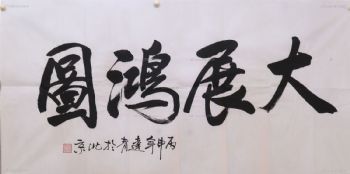 大展鴻圖
丙申年建青於北京